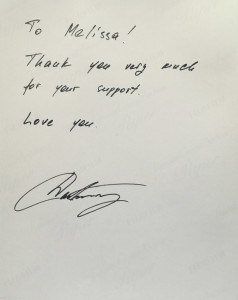 To Melissa!
Thank you very much
for your support.
Love you.